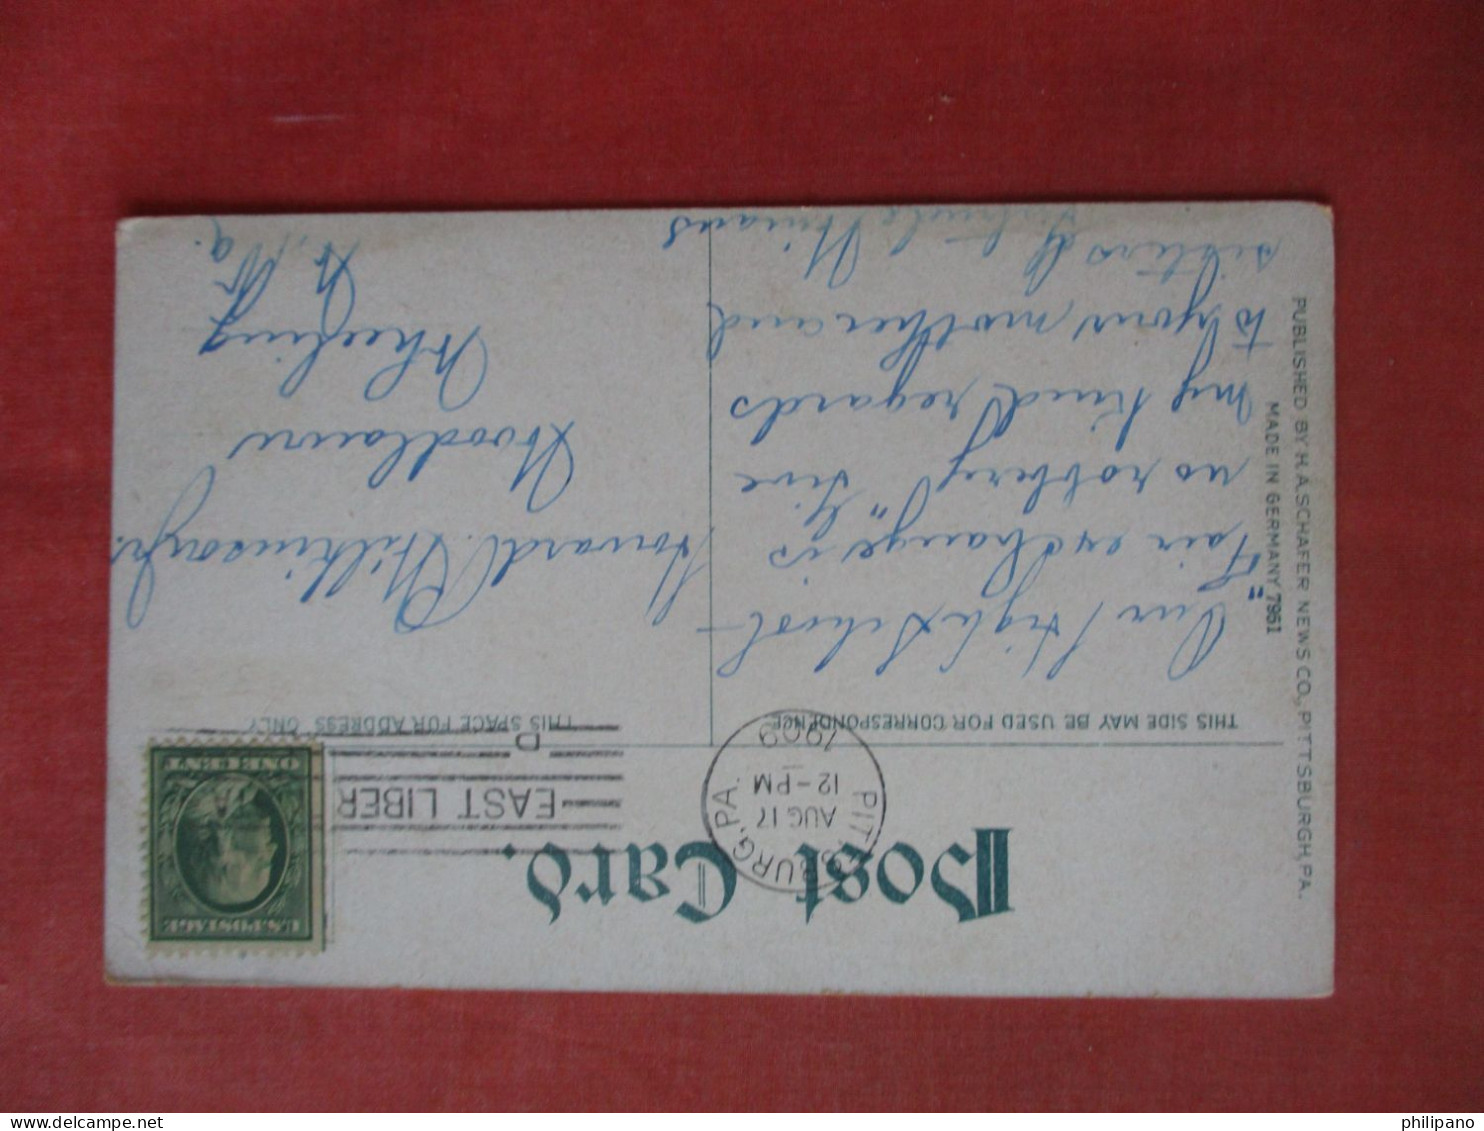 Post Card.
PITTSBURG, PA.
AUG 17
12-PM
1909
EAST LIBER
P
U.S. POSTAGE
ONE CENT
THIS SIDE MAY BE USED FOR CORRESPONDENCE
THIS SPACE FOR ADDRESS ONLY
Our High School —
"Fair exchange is
no robbery" Give
my kind regards
to your mother and
sisters
Howard Wilkinson Jr.
Woodlawn
Wheeling
W. Va.
PUBLISHED BY H. A. SCHAFER NEWS CO., PITTSBURGH, PA.
MADE IN GERMANY 7951
philipano